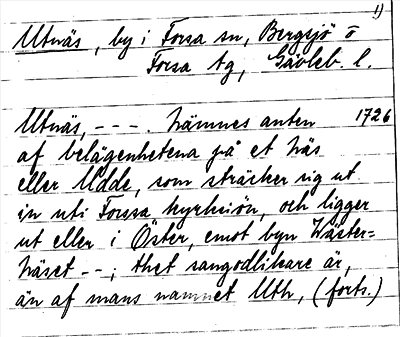 1)
Utnäs, by i Forsa sn, Bergsjö o
Forsa tg, Gävleb. l.
Utnäs, - - - . Nämnes anten 1726
af belägenhetena på et Näs
eller Udde, som sträcker sig ut
in uti Forssa kyrkiön, och ligger
ut eller i Öster, emot byn Wäster=
näset - - ; thet sangodlikare är,
än af mans namnet Uth, (forts.)